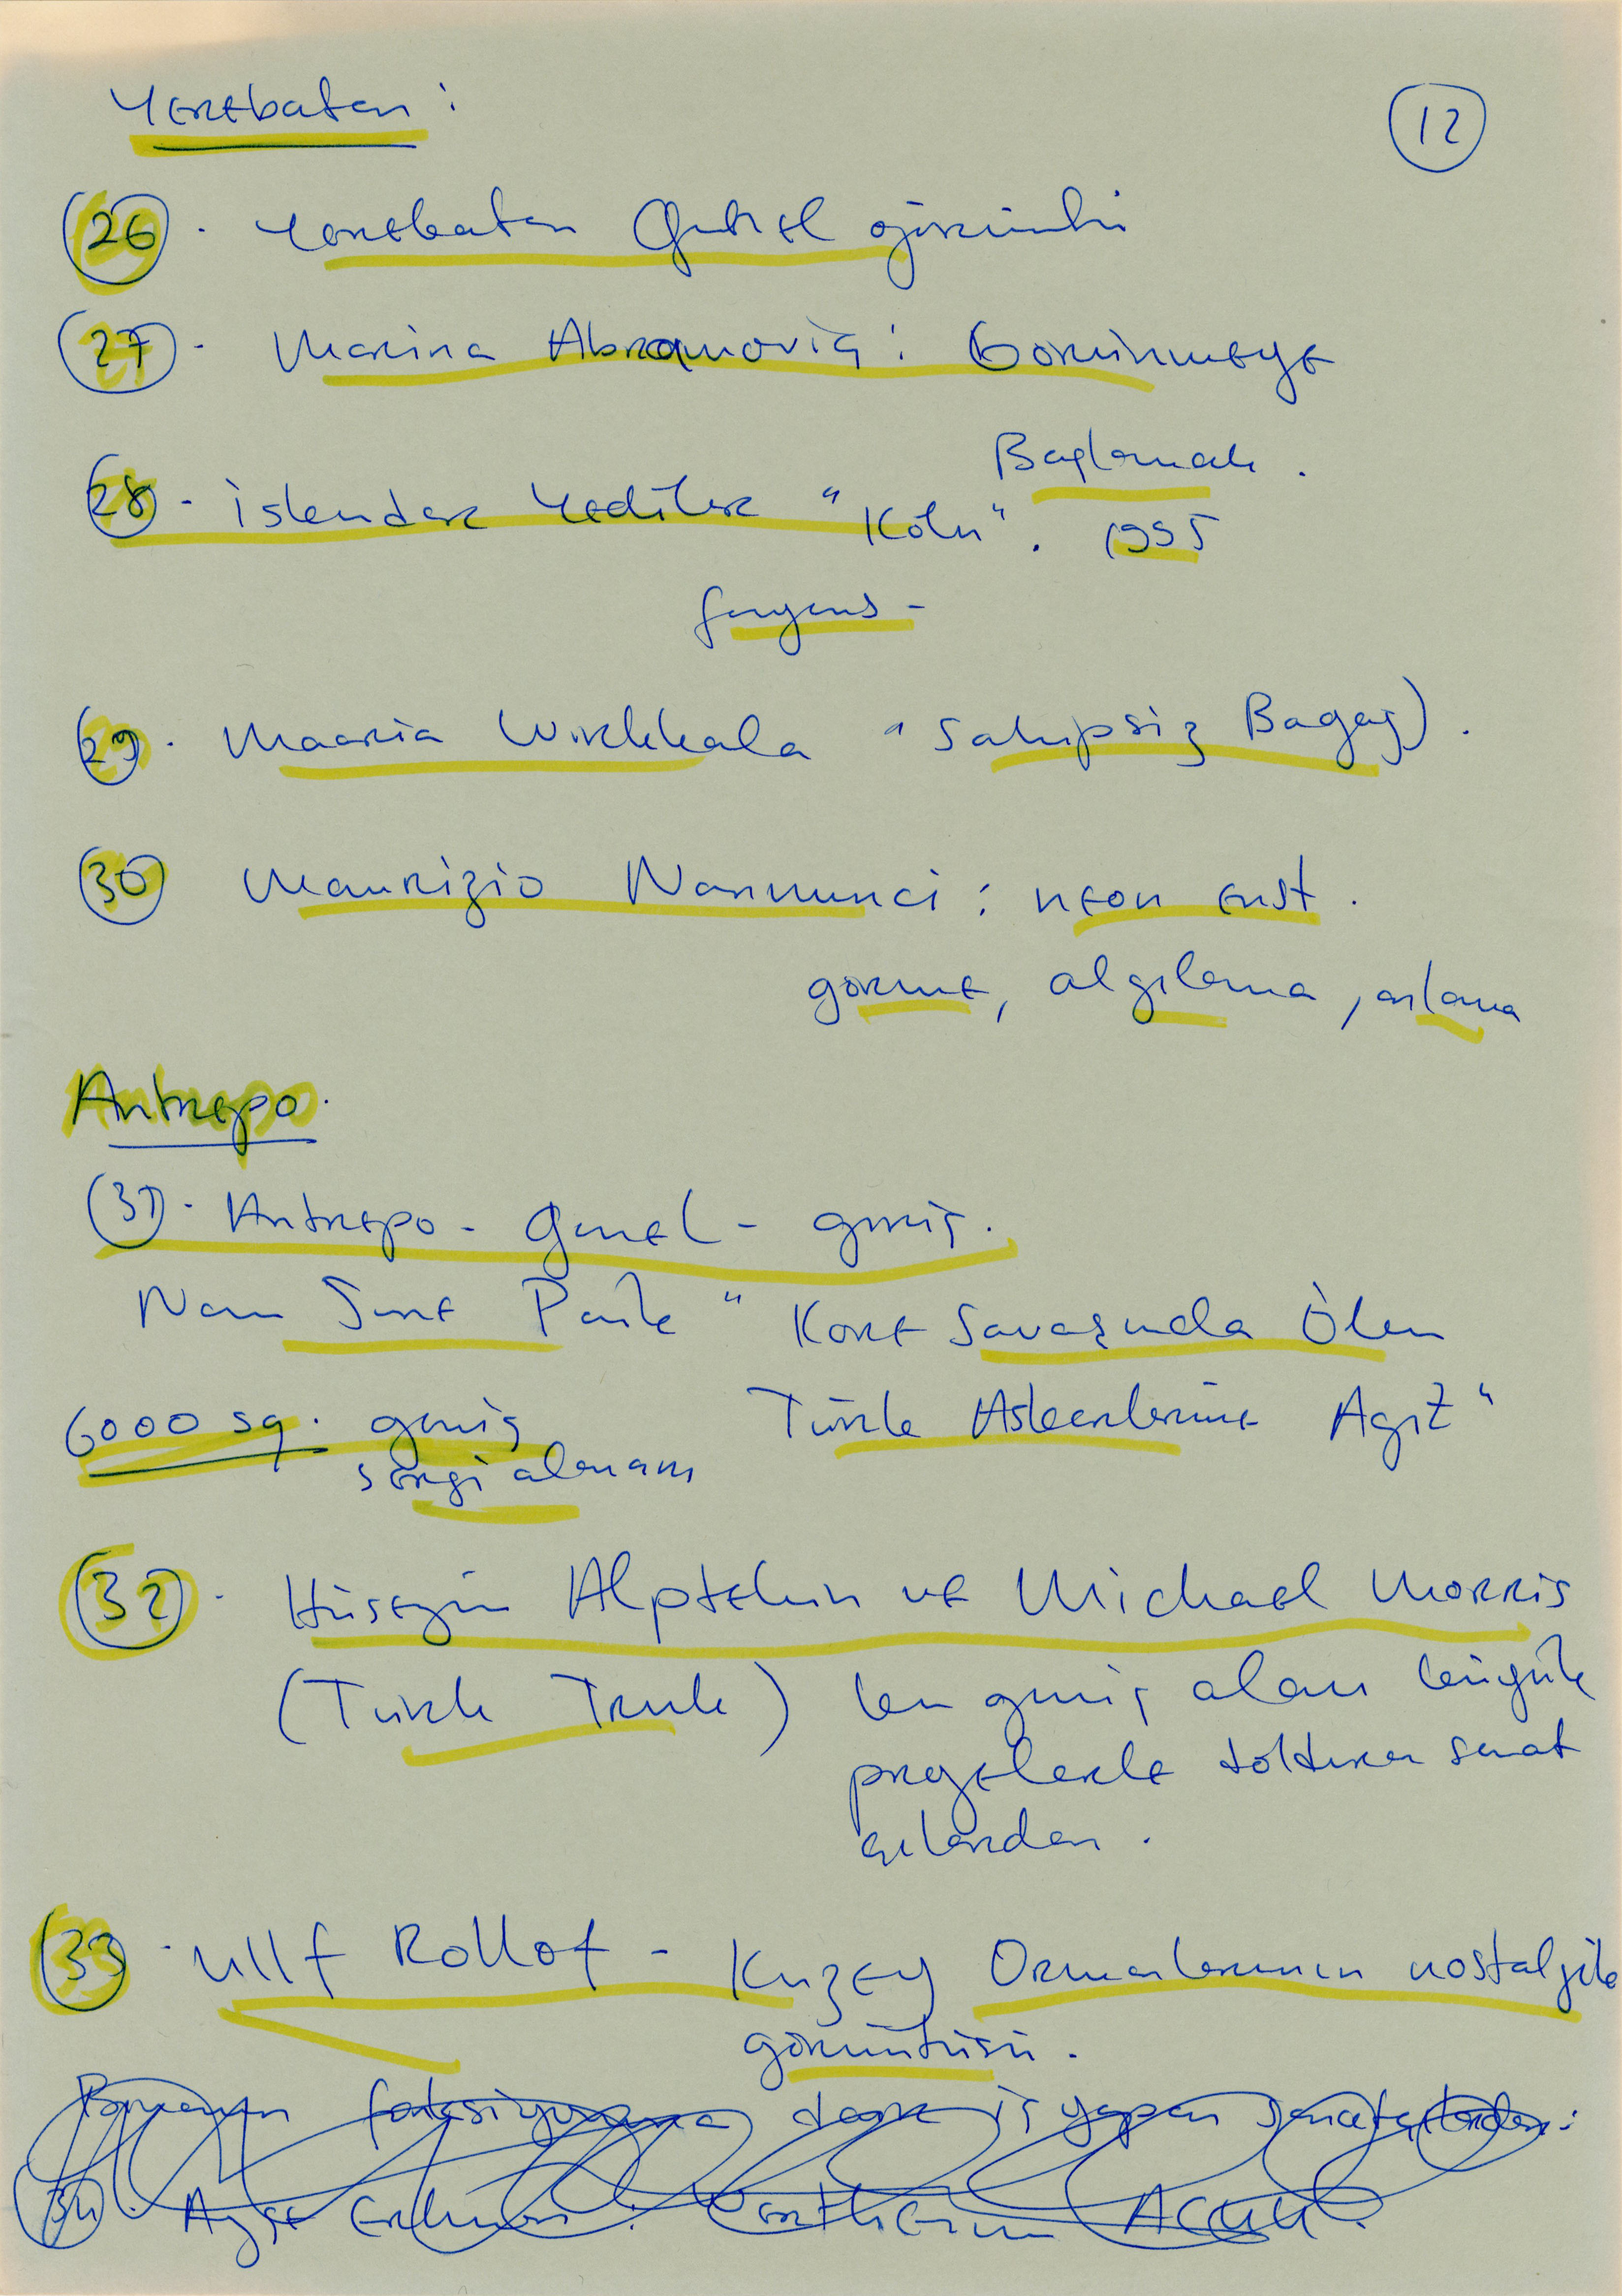 Yerebatan :
12
26. Yerebatan Genel görünü
27. Marina Abramoviç : Görünmeye
Bağlamak.
28. İskender Yediler "Köln". 1995
29. Maaria Wirkkala "Sahipsiz Bagaj).
30 Maurizio Nannucci : neon enst.
görme, algılama,
Antrepo.
31. Antrepo - Genel - giriş.
Nam June Paik " Kore Savaşında Ölen
Türk Askerlerine Agıt"
6000 sq. geniş
sergi alanını
32. Hüseyin Alptekin ve Michael Morris
(Türk Truk) bu geniş alanı büyük
projelerle dolduran sanat
çılardan.
33. Ulf Rollof - Kuzey Ormanlarının nostaljik
görüntüsü.
Binanın fonksiyonuna dair iş yapan sanatçılardan:
34. Ayşe Erkmen :